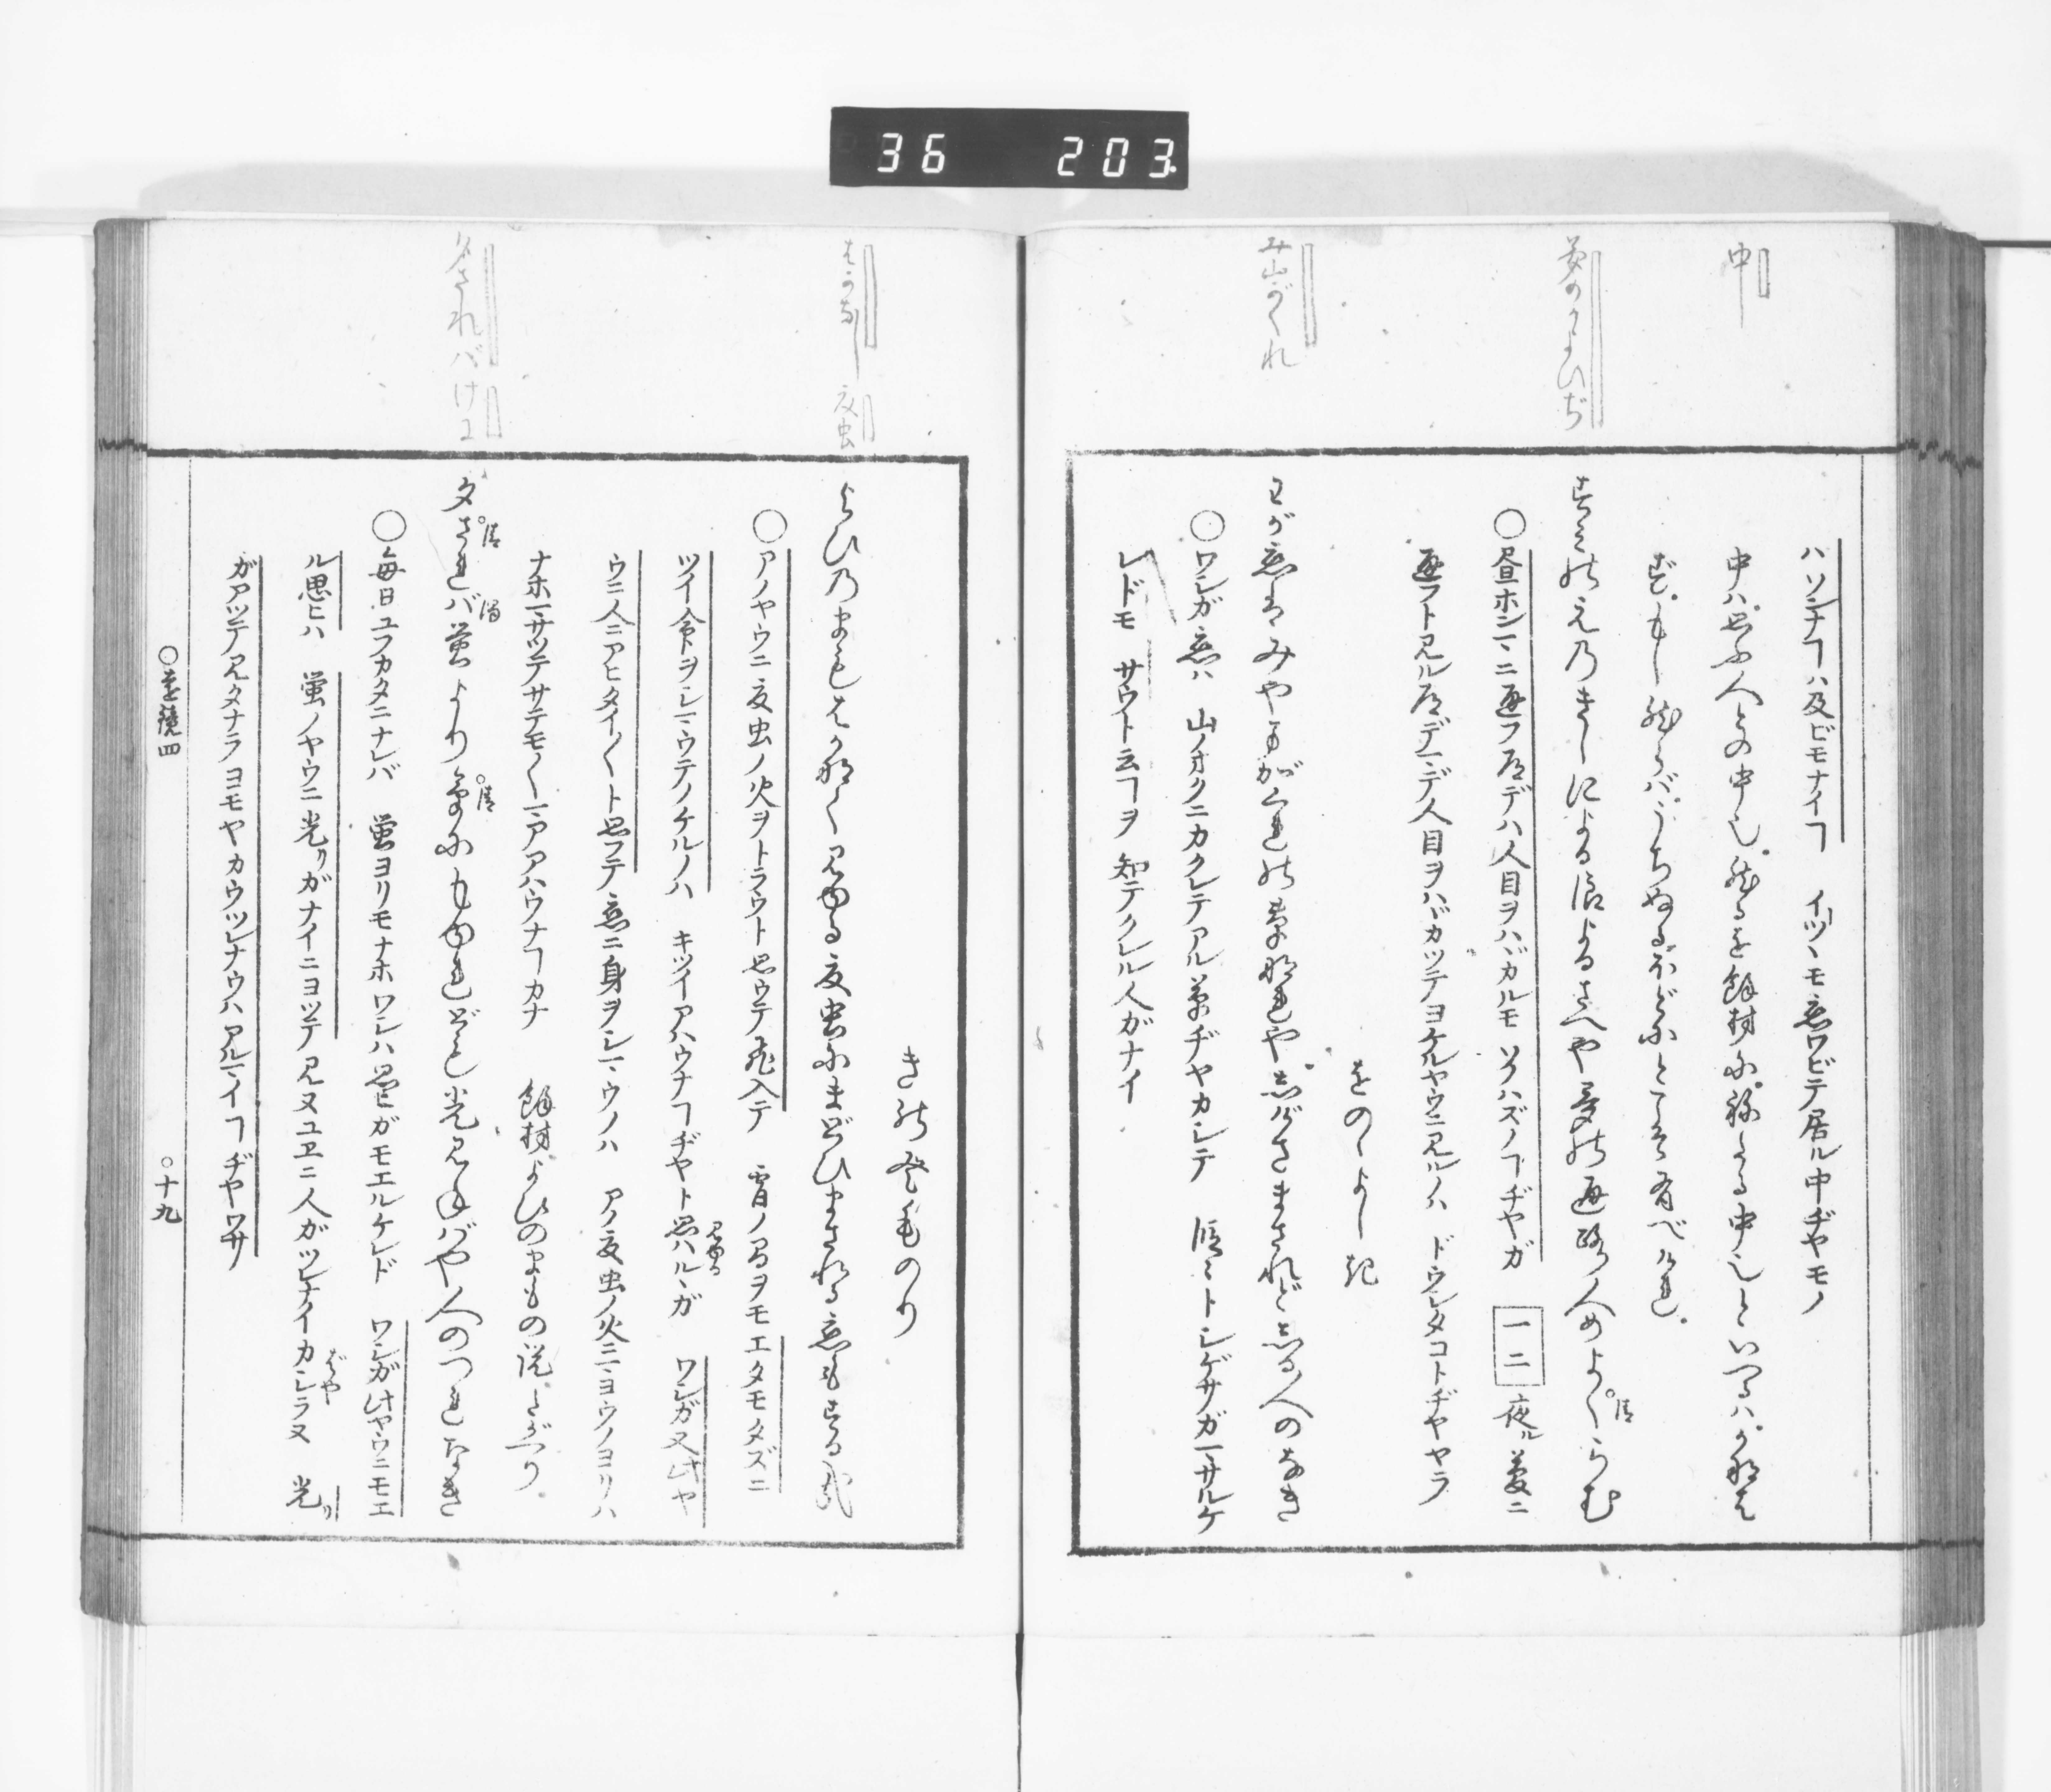 36 203
中
夢のかよひぢ
み山がくれ
ハソンナヿハ及ビモナイヿ イツヽモ恋ワビテ居ル中ヂヤモノ
中ハ思ふ人との中也。然るを餘材に
ずもし然らバうちぬるほどにとこそ有べけれ。
すみの江のきしによる浪よるさへや夢の通路人めよくらむ
清
○昼ホンマニ逼フ段デハ人目ヲハヾカルモ ソノハズノヿヂヤガ 一二 夜ル夢ニ
逼フト見ル段デマデ人目ヲハヾカツテヨケルヤウニ見ルノハ ドウシタコトヂヤヤラ
をのゝよし記
わが恋はみやまがくれの草なれやしげさまされどしる人のなき
○ワシガ恋ハ 山ノオクニカクレテアル草ヂヤカシテ 段々トシゲサガマサルケ
レドモ サウト云ヿヲ 知テクレル人ガナイ
はかなし 夏虫
夕されバ けに
きの登毛のり
よひのまもはかなく見ゆる夏虫にまどひまされる恋もする哉
○アノヤウニ夏虫ノ火ヲトラウト思ウテ飛入テ 宵ノ間ヲモエタモタズニ
ツイ命ヲシマウテノケルノハ キツイアハウナヿヂヤト思ハルヽガ ワシガ又此ヤ
見ゆる
ウニ人ニアヒタイ〳〵ト思フテ恋ニ身ヲシマウノハ アノ夏虫ノ火ニマヨウノヨリハ
ナホマサツテサテモ〳〵マアアハウナヿカナ 餘材よひのまもの説たがへり。
夕されバ蛍よりけにもゆれどもひかり見ねバや人のつれなき
清 濁 清
○毎日ユフカタニナレバ 蛍ヨリモナホワシハ思ヒガモエルケレド ワシガ此ヤウニモエ
ル思ヒハ 蛍ノヤウニ光リガナイニヨツテ見ヌユヱニ人ガツレナイカシラヌ 光リ
ばや
ガアツテ見タナラヨモヤカウツレナウハアルマイヿヂヤワサ
○遠鏡四
○十九